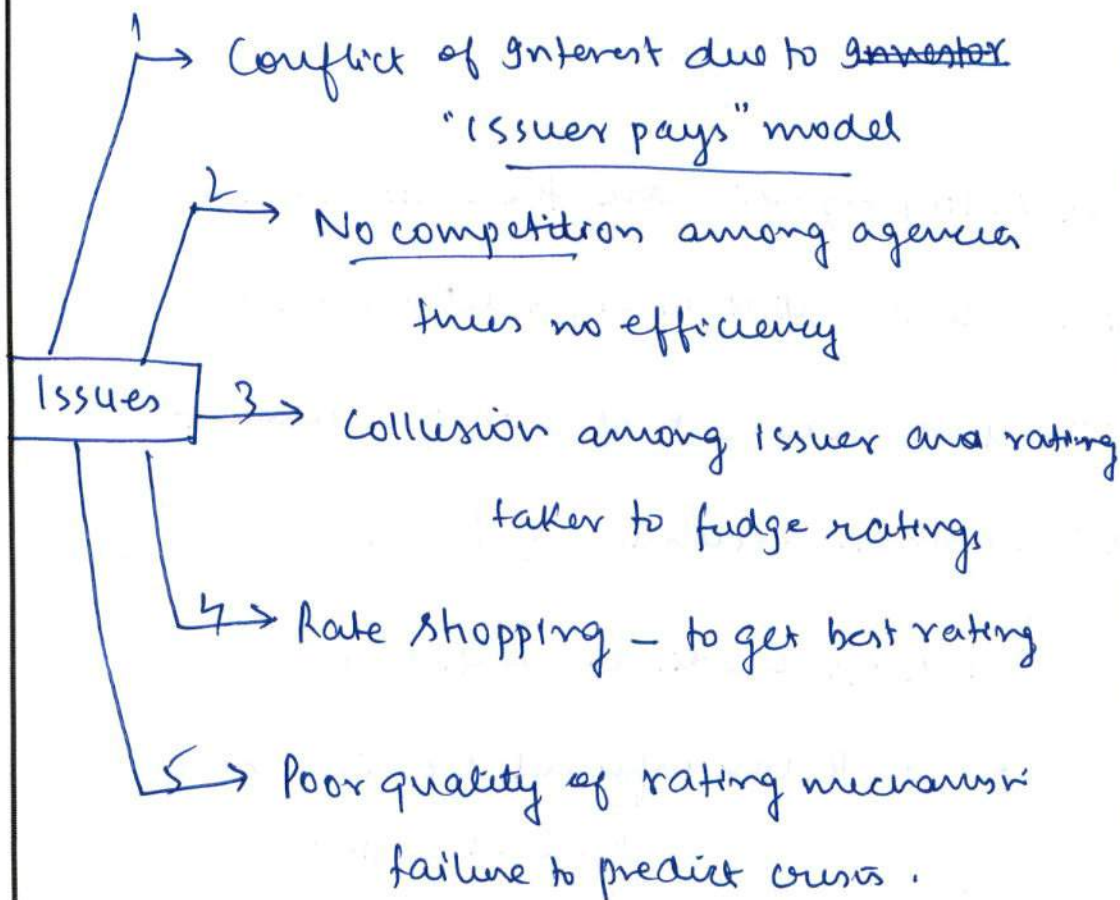 1 → Conflict of Interest due to Investor
"Issuer pays" model
2 → No competition among agencies
thus no efficiency
Issues
3 → Collusion among issuer and rating
taker to fudge ratings
4 → Rate shopping – to get best rating
5 → Poor quality of rating mechanism
failure to predict crisis.